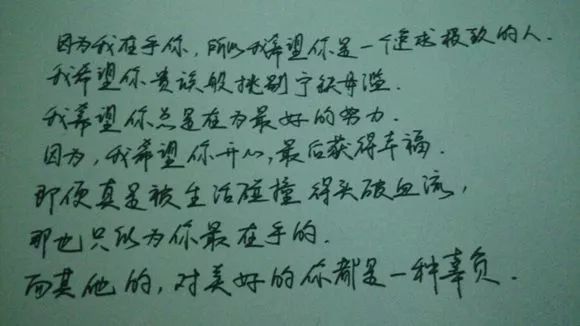 因为我在乎你，所以我希望你是一个追求极致的人．
我希望你贵族般挑剔宁缺毋滥．
我希望你总是在为最好的努力．
因为，我希望你开心，最后获得幸福．
即便真是被生活碰撞得头破血流，
那也只以为你最在乎的．
而其他的，对美好的你都是一种辜负．